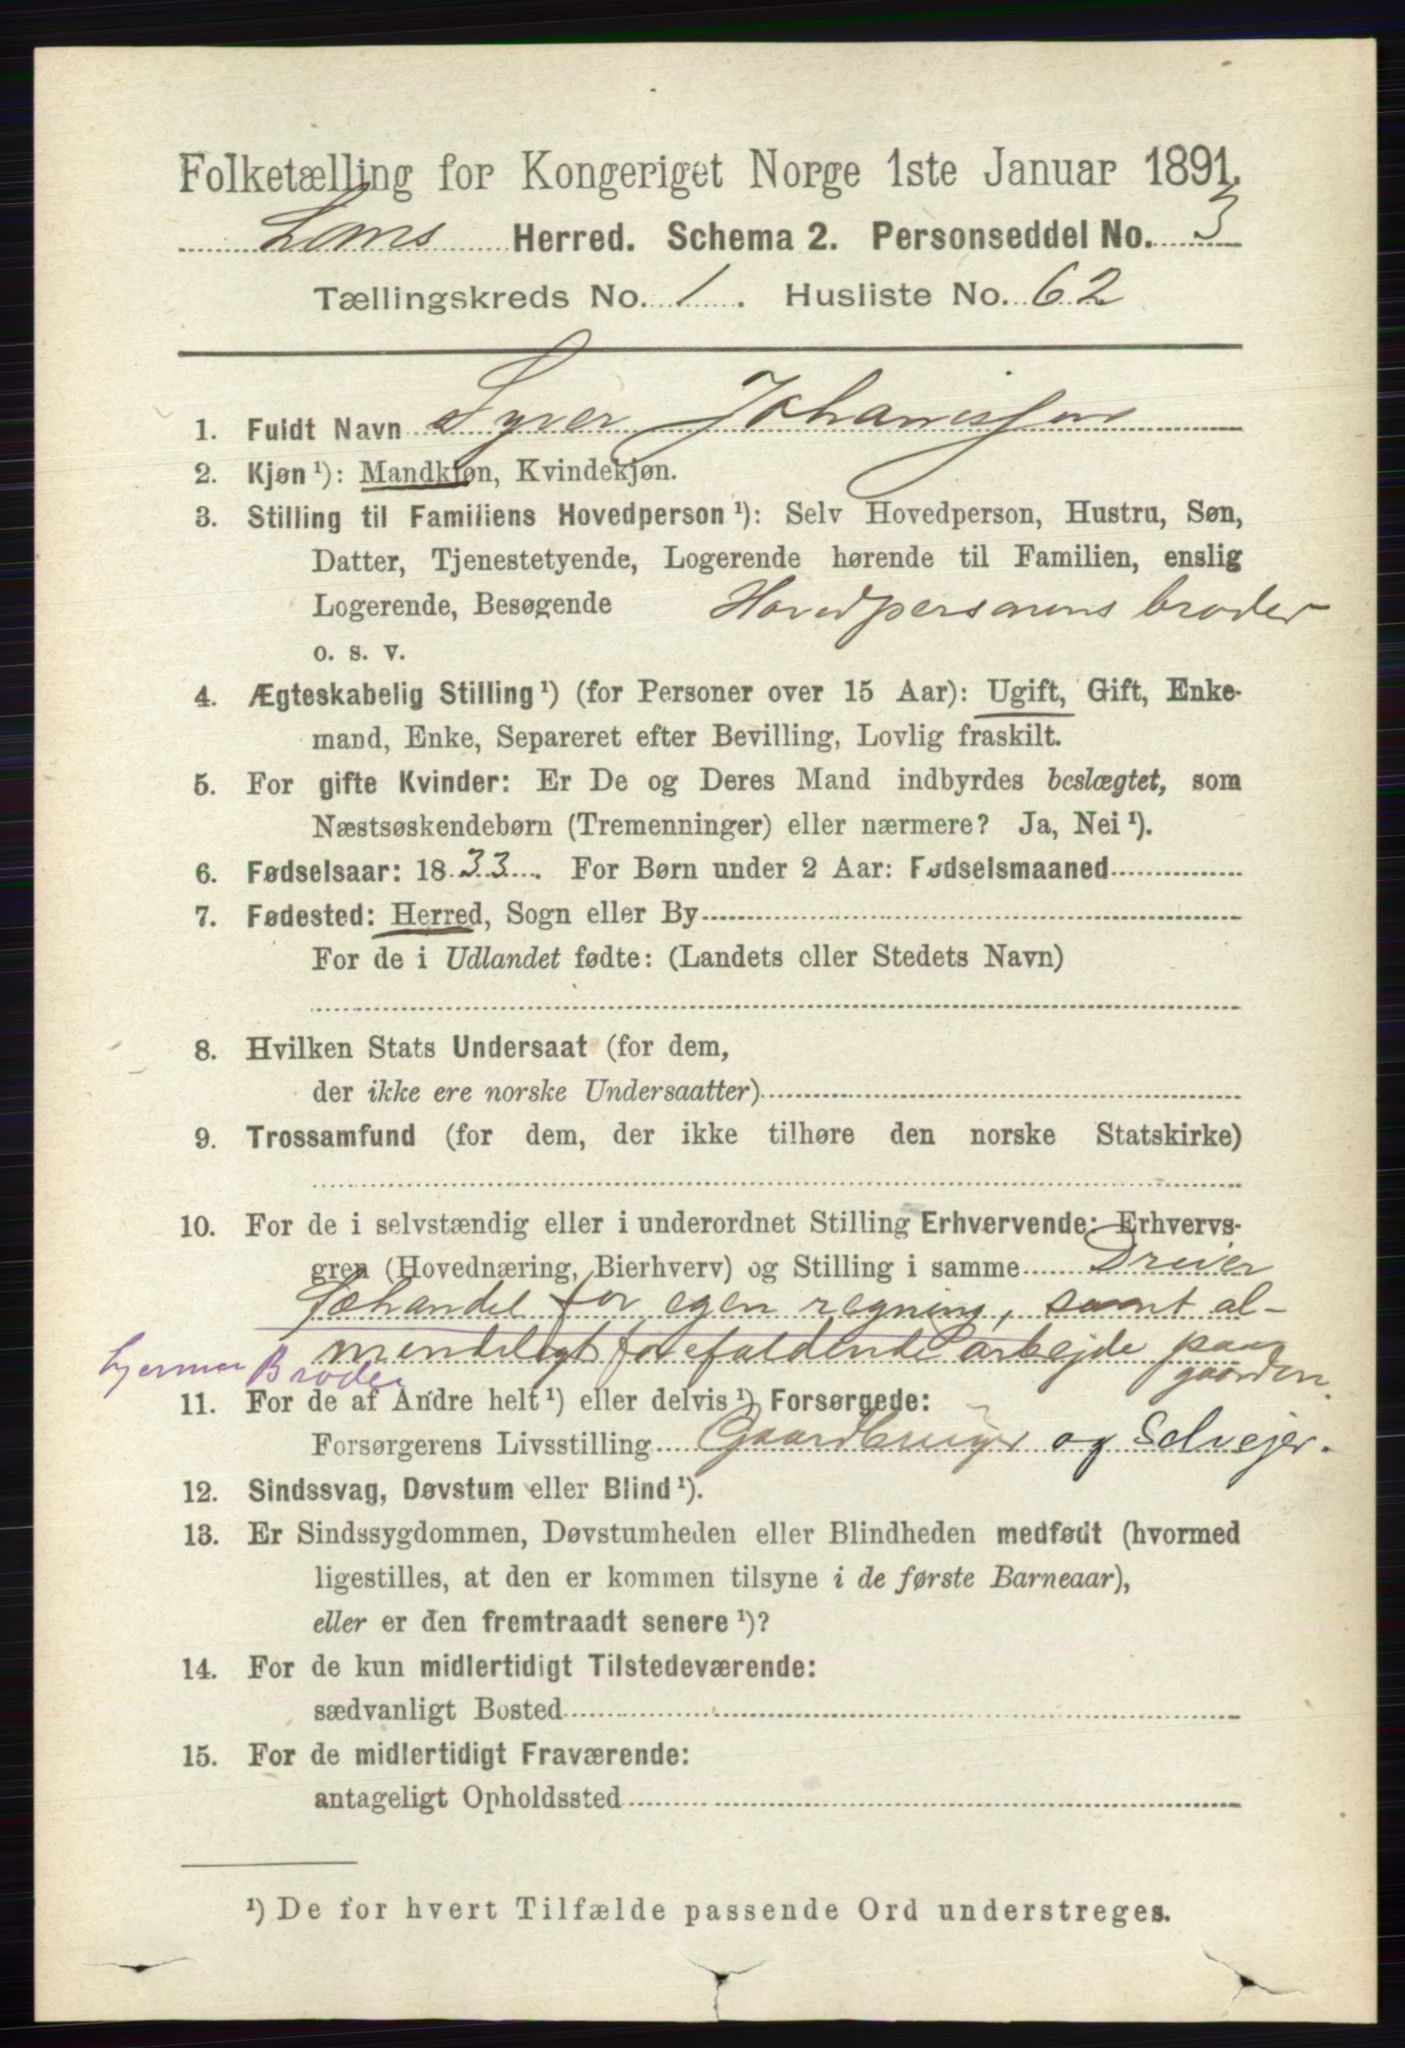 Folketælling for Kongeriget Norge 1ste Januar 1891.
Loms Herred. Schema 2. Personseddel No. 3
Tællingskreds No. 1. Husliste No. 62
1. Fuldt Navn Syver Johannesen
2. Kjøn¹): Mandkjøn, Kvindekjøn.
3. Stilling til Familiens Hovedperson¹): Selv Hovedperson, Hustru, Søn,
Datter, Tjenestetyende, Logerende hørende til Familien, enslig
Logerende, Besøgende Hovedpersonens broder
o. s. v.
4. Ægteskabelig Stilling¹) (for Personer over 15 Aar): Ugift, Gift, Enke-
mand, Enke, Separeret efter Bevilling, Lovlig fraskilt.
5. For gifte Kvinder: Er De og Deres Mand indbyrdes beslægtet, som
Næstsøskendebørn (Tremenninger) eller nærmere? Ja, Nei¹).
6. Fødselsaar: 1833. For Børn under 2 Aar: Fødselsmaaned
7. Fødested: Herred, Sogn eller By
For de i Udlandet fødte: (Landets eller Stedets Navn)
8. Hvilken Stats Undersaat (for dem,
der ikke ere norske Undersaatter)
9. Trossamfund (for dem, der ikke tilhøre den norske Statskirke)
10. For de i selvstændig eller i underordnet Stilling Erhvervende: Erhvervs-
gren (Hovednæring, Bierhverv) og Stilling i samme Driver
fæhandel for egen regning, samt al-
mindeligt forefaldende arbejde paa
gaarden.
hjemme Broder
11. For de af Andre helt¹) eller delvis¹) Forsørgede:
Forsørgerens Livsstilling Gaardbruger og Selvejer.
12. Sindssvag, Døvstum eller Blind¹).
13. Er Sindssygdommen, Døvstumheden eller Blindheden medfødt (hvormed
ligestilles, at den er kommen tilsyne i de første Barneaar),
eller er den fremtraadt senere¹)?
14. For de kun midlertidigt Tilstedeværende:
sædvanligt Bosted
15. For de midlertidigt Fraværende:
antageligt Opholdssted
¹) De for hvert Tilfælde passende Ord understreges.